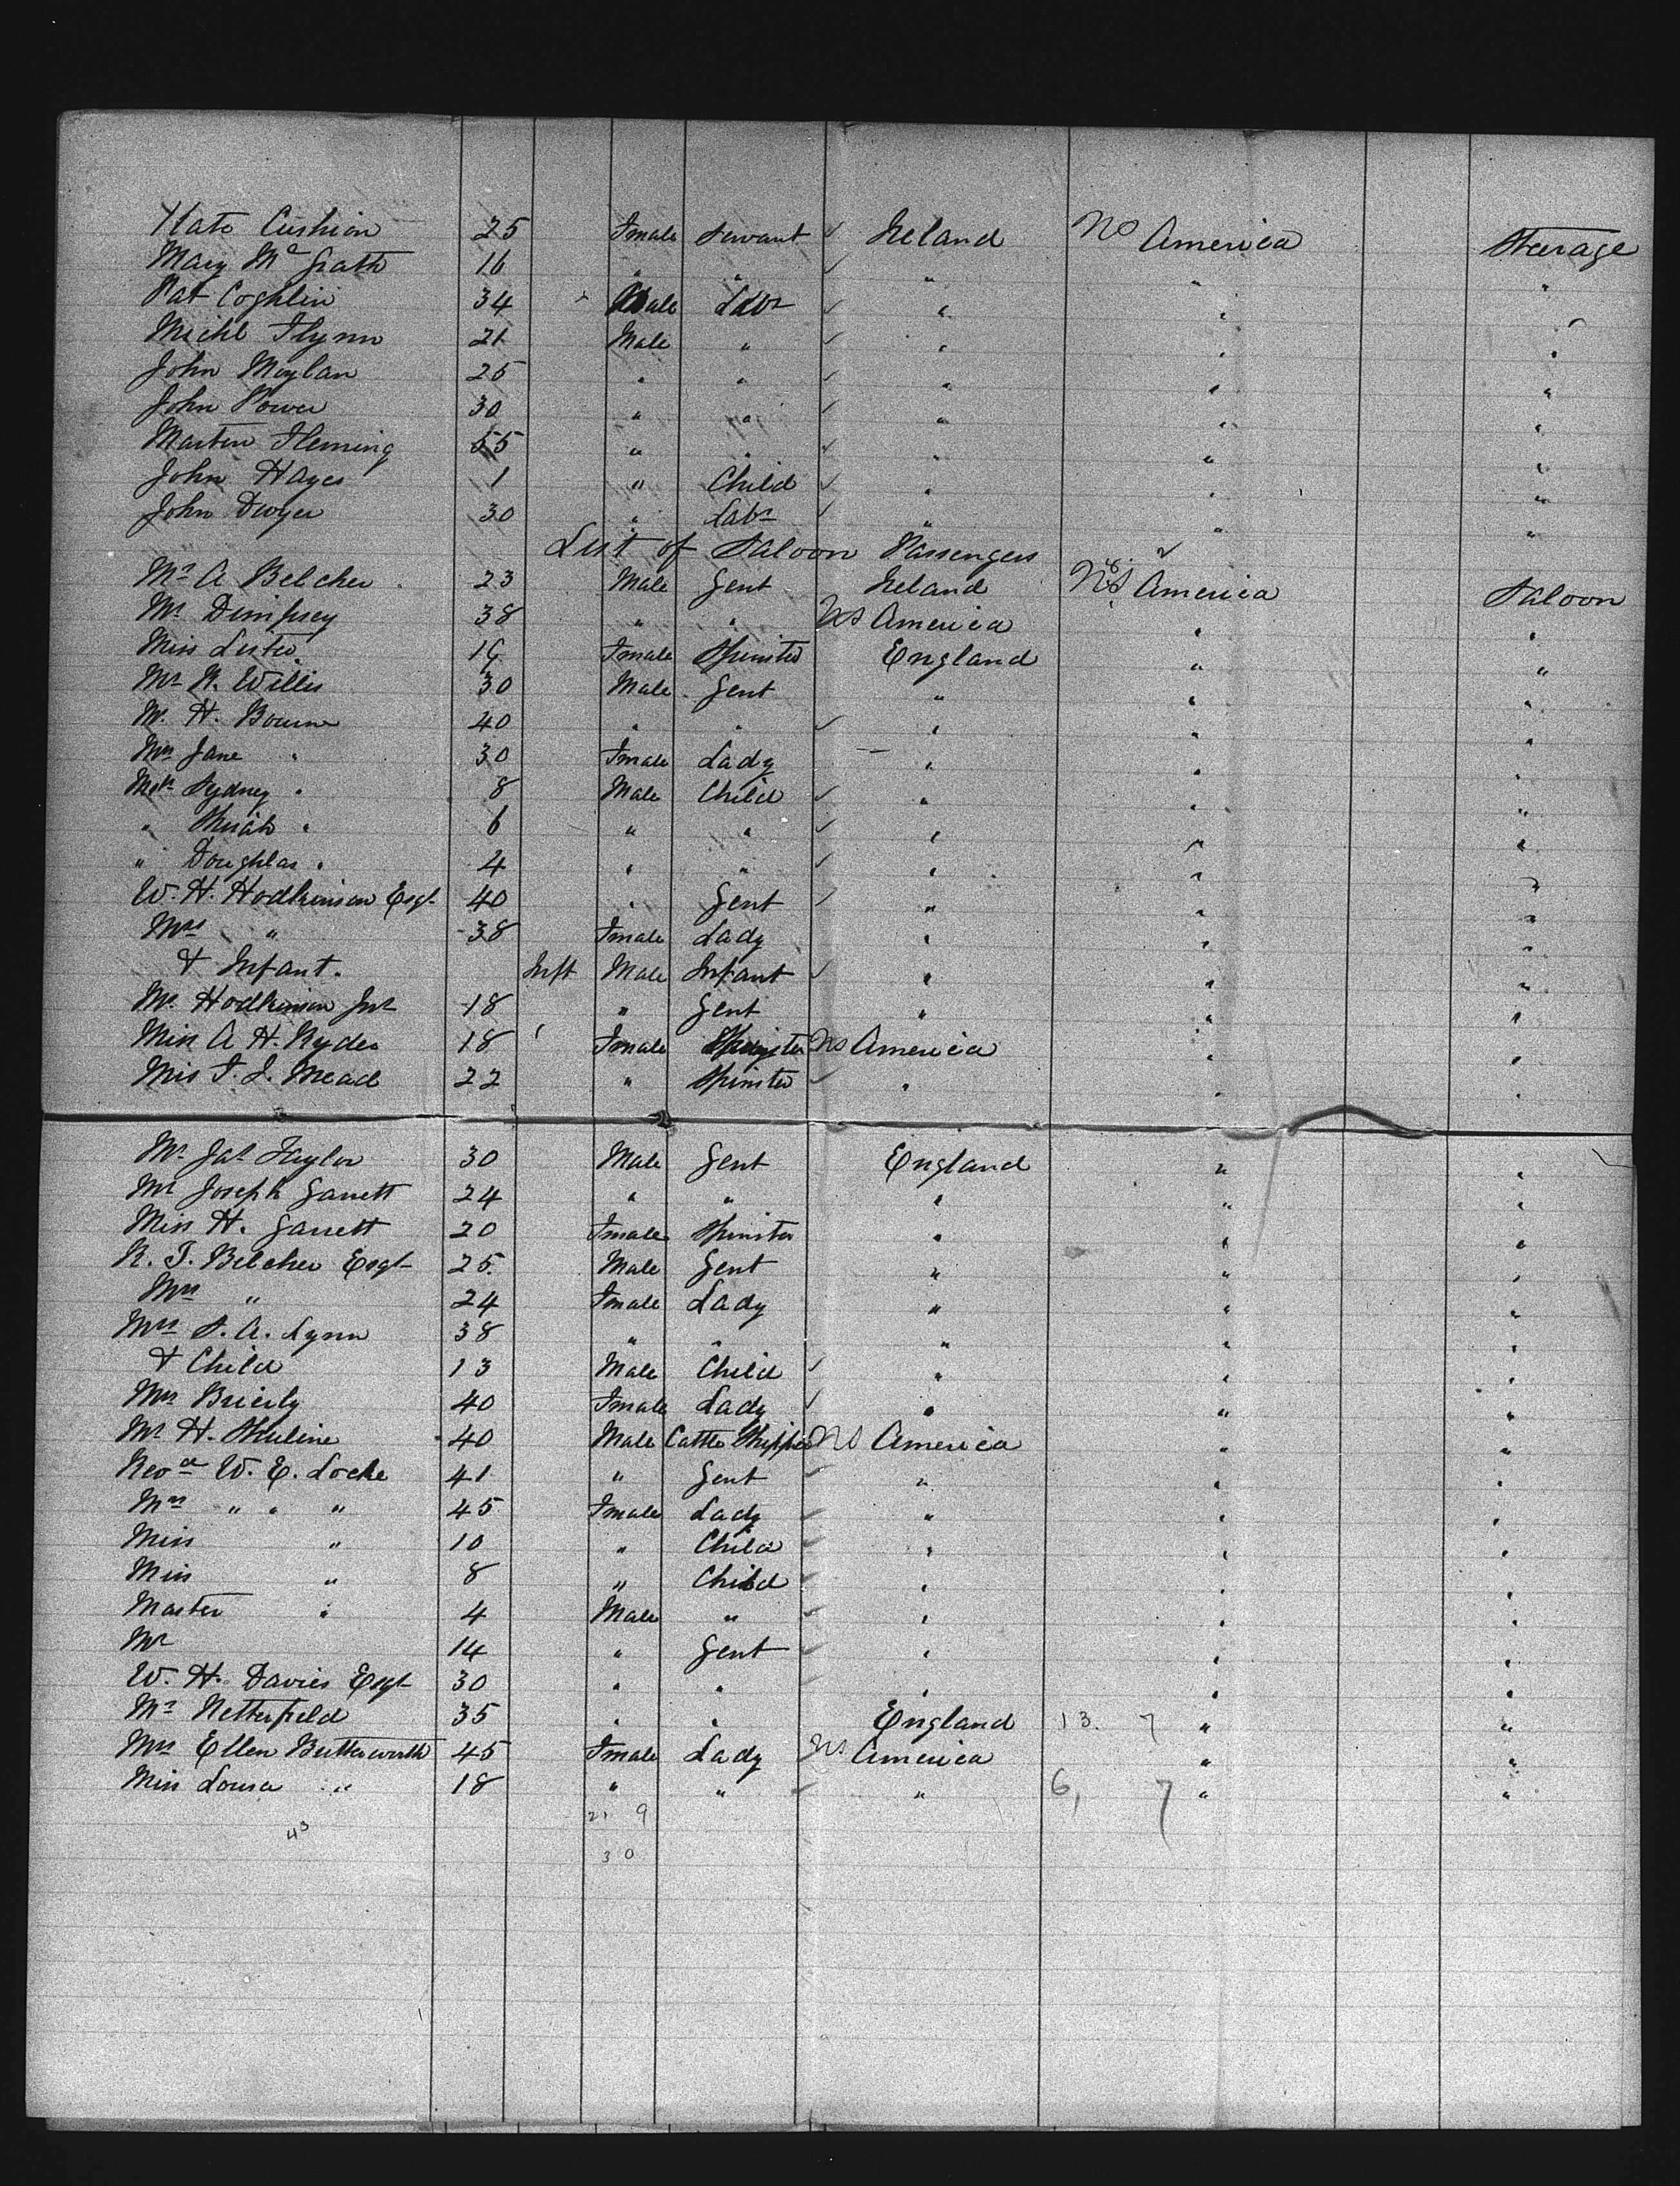 Kate Cushion 25 Female Servant Ireland US America Steerage
Mary McGrath 16 " " " " "
Pat Coghlin 34 Male Labr " " "
Michl Flynn 21 Male " " " "
John Moylan 25 " " " " "
John Power 30 " " " " "
Martin Fleming 55 " " " " "
John Hayes 1 " Child " " "
John Dwyer 30 " Labr " " "
List of Saloon Passengers
Mr A Belcher 23 Male Gent Ireland US America Saloon
Mr Dimpsey 38 " " US America " "
Miss Lister 19 Female Spinster England " "
Mr R. Willis 30 Male Gent " " "
Mr H. Bourne 40 " " " " "
Mrs Jane " 30 Female Lady " " "
Mstr Sydney " 8 Male Child " " "
" " 6 " " " " "
" Doughlas " 4 " " " " "
W. H. Hodkinson Esqr 40 " Gent " " "
Mrs " 38 Female Lady " " "
& Infant. Inft Male Infant " " "
Mr Hodkinson Jnr 18 " Gent " " "
Miss A H. Ryder 18 Female Spinster US America " "
Mis T. J. Mead 22 " Spinster " " "
Mr Jas Taylor 30 Male Gent England " "
Mr Joseph Garrett 24 " " " " "
Miss H. Garrett 20 Female Spinster " " "
R. T. Belcher Esqr 25 Male Gent " " "
Mrs " 24 Female Lady " " "
Mrs S. A. Lynn 38 " " " " "
& Child 13 Male Child " " "
Mrs Brierly 40 Female Lady " " "
Mr H. 40 Male Cattle Shipper US America " "
Revd W. E. Locke 41 " Gent " " "
Mrs " " " 45 Female Lady " " "
Miss " 10 " Child " " "
Miss " 8 " Child " " "
Master " 4 Male " " " "
Mr 14 " Gent " " "
W. H. Davies Esqr 30 " " " " "
Mr Netterfield 35 " " England 13. 7 " "
Mrs Ellen Butterworth 45 Female Lady US America " "
Miss Lousa " 18 " " " 6, 7 " "
21 9
43
30